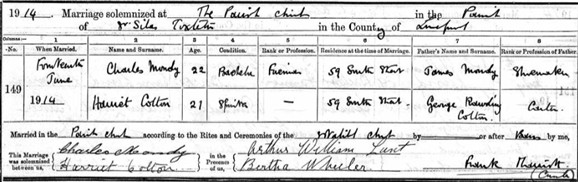 1914. Marriage solemnized at The Parish church in the Parish
of St Silas Toxteth in the County of Liverpool
Columns:— 1 2 3 4 5 6 7 8
No. When Married. Name and Surname. Age. Condition. Rank or Profession. Residence at the time of Marriage. Father's Name and Surname. Rank or Profession of Father.
149 Fourteenth June 1914 Charles Moody 22 Bachelor Fireman 59 South Street James Moody Shoemaker
Harriet Colton 21 Spinster — 59 South Street George Colton. Carter
Married in the Parish church according to the Rites and Ceremonies of the church by or after Banns by me,
This Marriage was solemnized between us, Charles Moody Harriet Colton in the Presence of us, Arthur William Lunt Bertha Wheeler Frank (Curate)